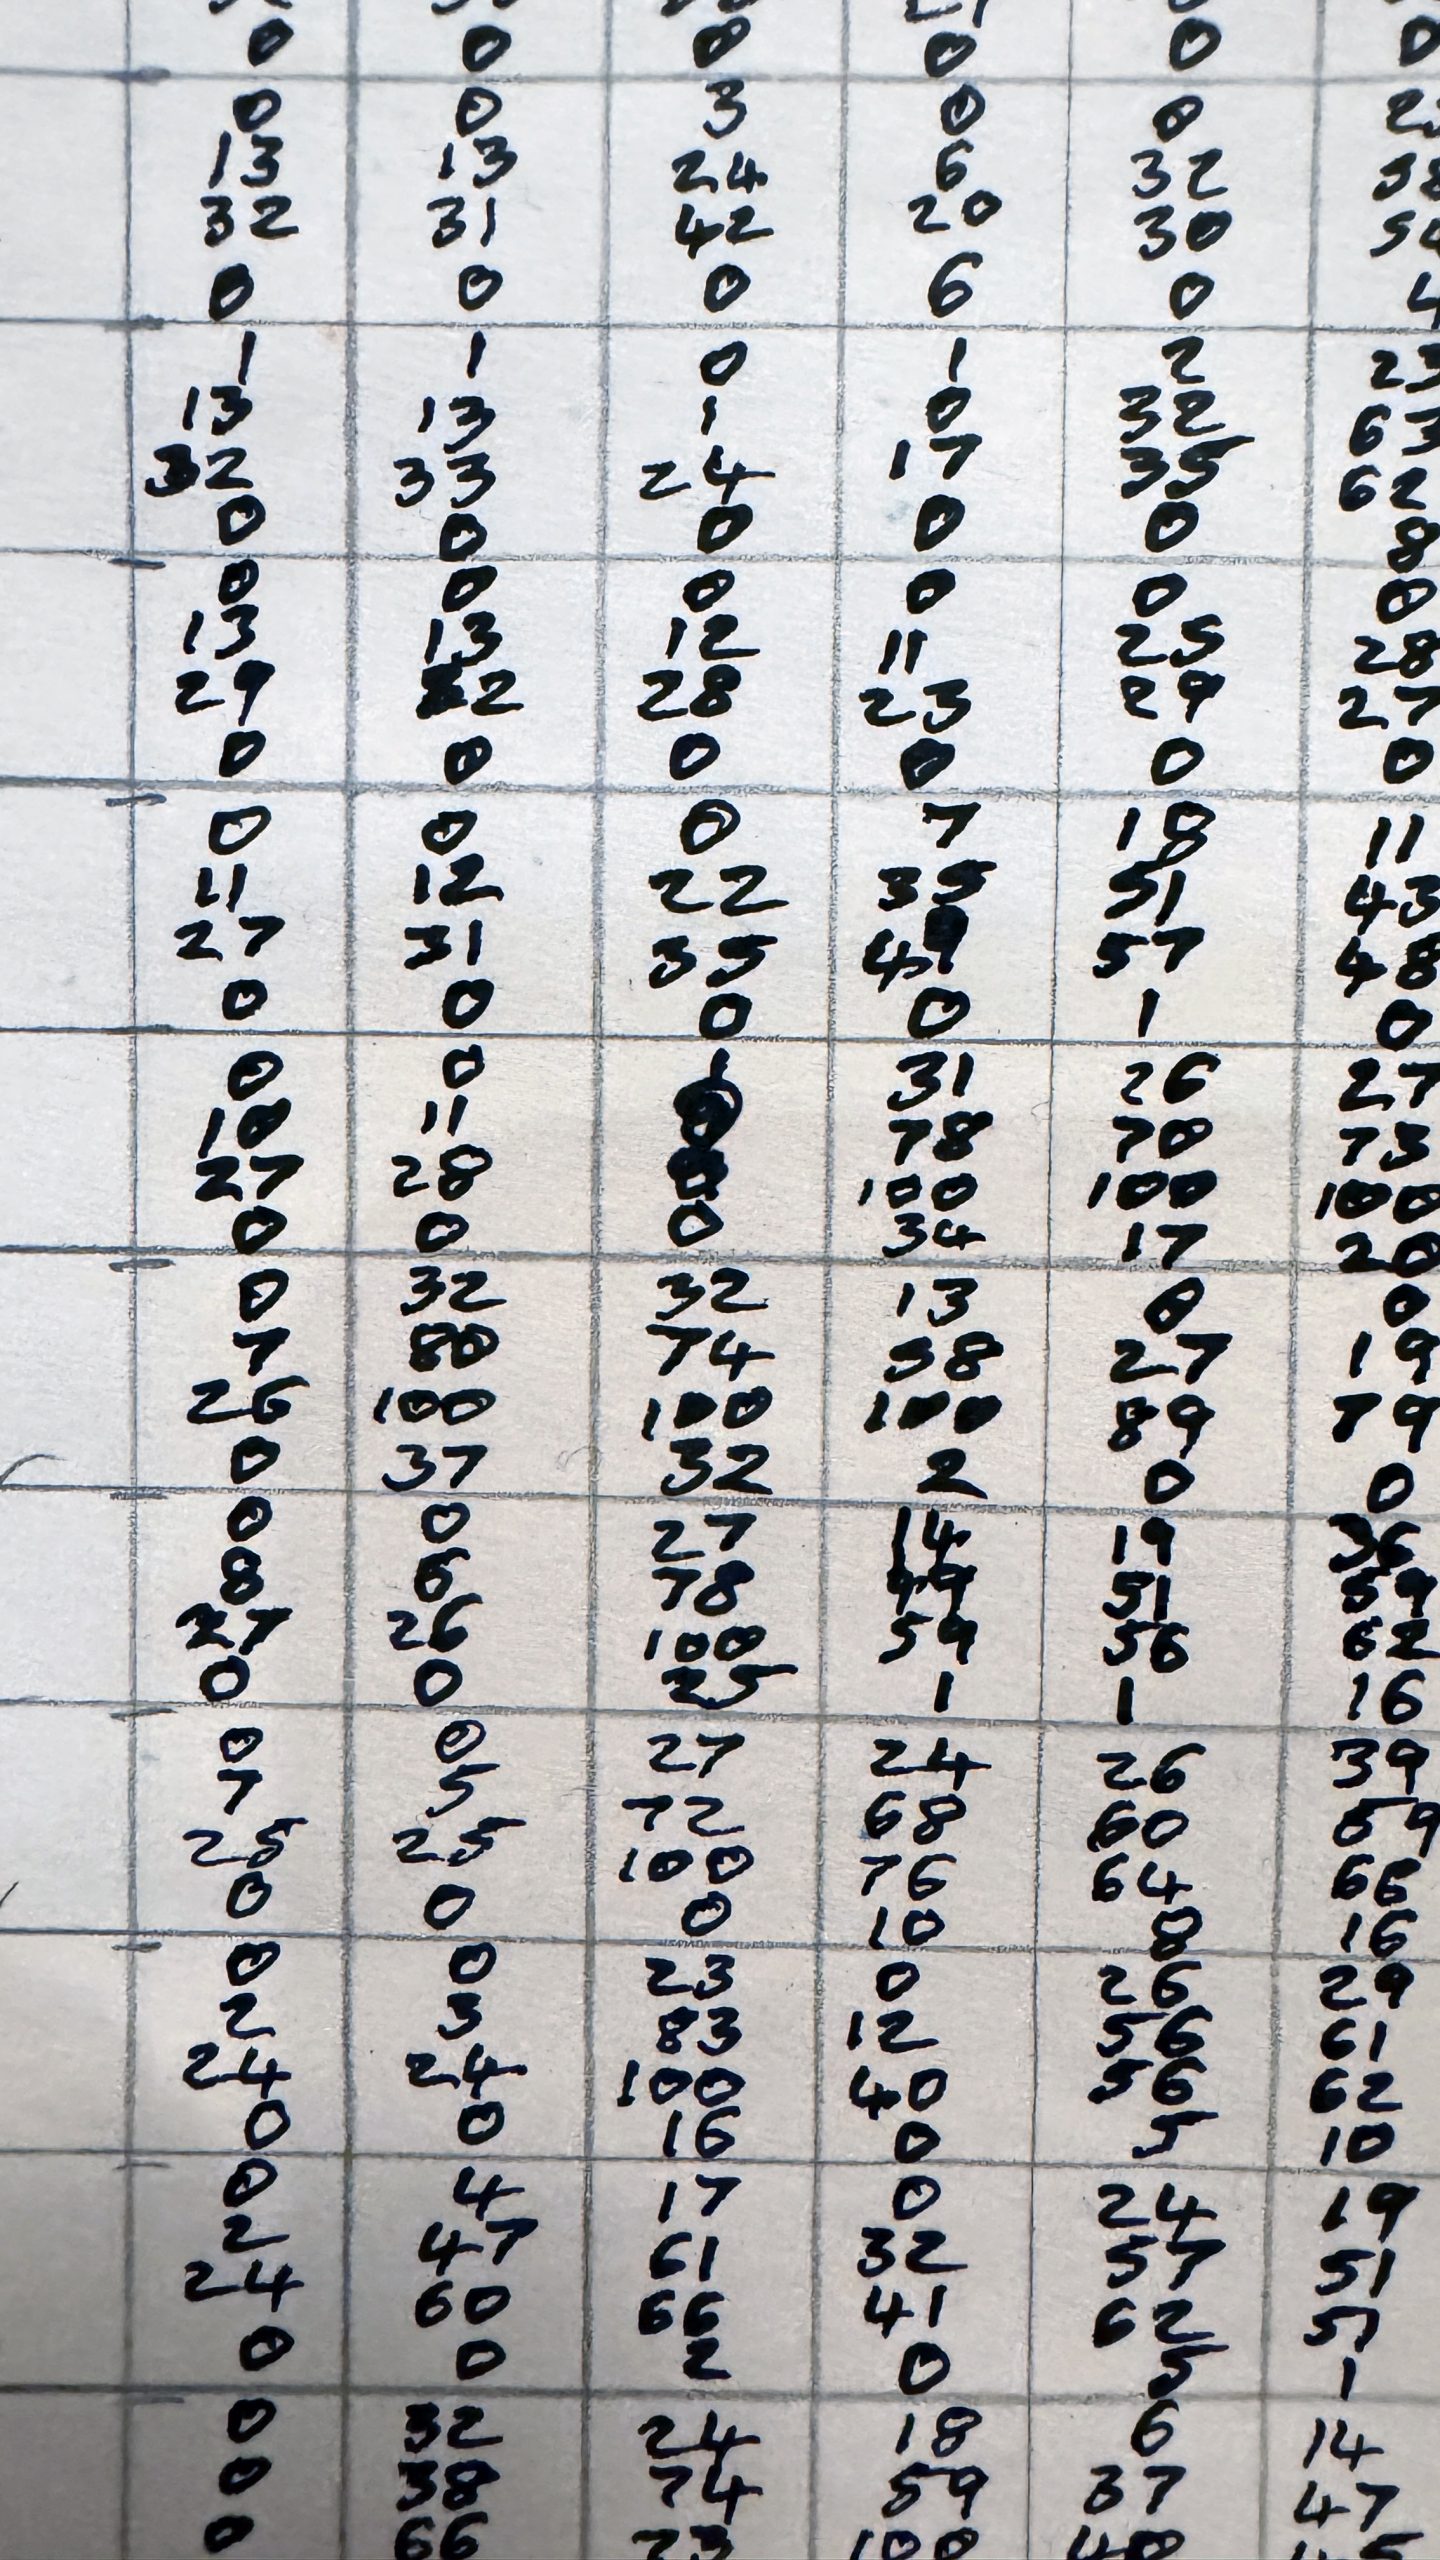 0 0 0 0 0 0
0 0 3 0 0
13 13 24 6 32
32 31 42 20 30
0 0 0 6 0 4
1 1 0 1 2 23
13 13 1 0 32 63
32 33 24 17 35 62
0 0 0 0 0 8
0 0 0 0 0 0
13 13 12 11 25 28
29 32 28 23 29 27
0 0 0 0 0 0
0 0 0 7 18 11
11 12 22 35 51 43
27 31 35 49 57 48
0 0 0 0 1 0
0 0 1 31 26 27
10 11 78 70 73
27 28 100 100 100
0 0 0 34 17 20
0 32 32 13 0 0
7 80 74 58 27 19
26 100 100 100 89 79
0 37 32 2 0 0
0 0 27 14 19 36
8 6 78 49 51 59
27 26 100 59 56 62
0 0 25 1 1 16
0 0 27 24 26 39
7 5 72 68 60 69
25 25 100 76 64 66
0 0 0 10 8 16
0 0 23 0 26 29
2 3 83 12 56 61
24 24 100 40 56 62
0 0 16 0 5 10
0 4 17 0 24 19
2 47 61 32 57 51
24 60 66 41 62 51
0 0 2 0 5 1
0 32 24 18 6 14
0 38 74 59 37 47
0 66 100